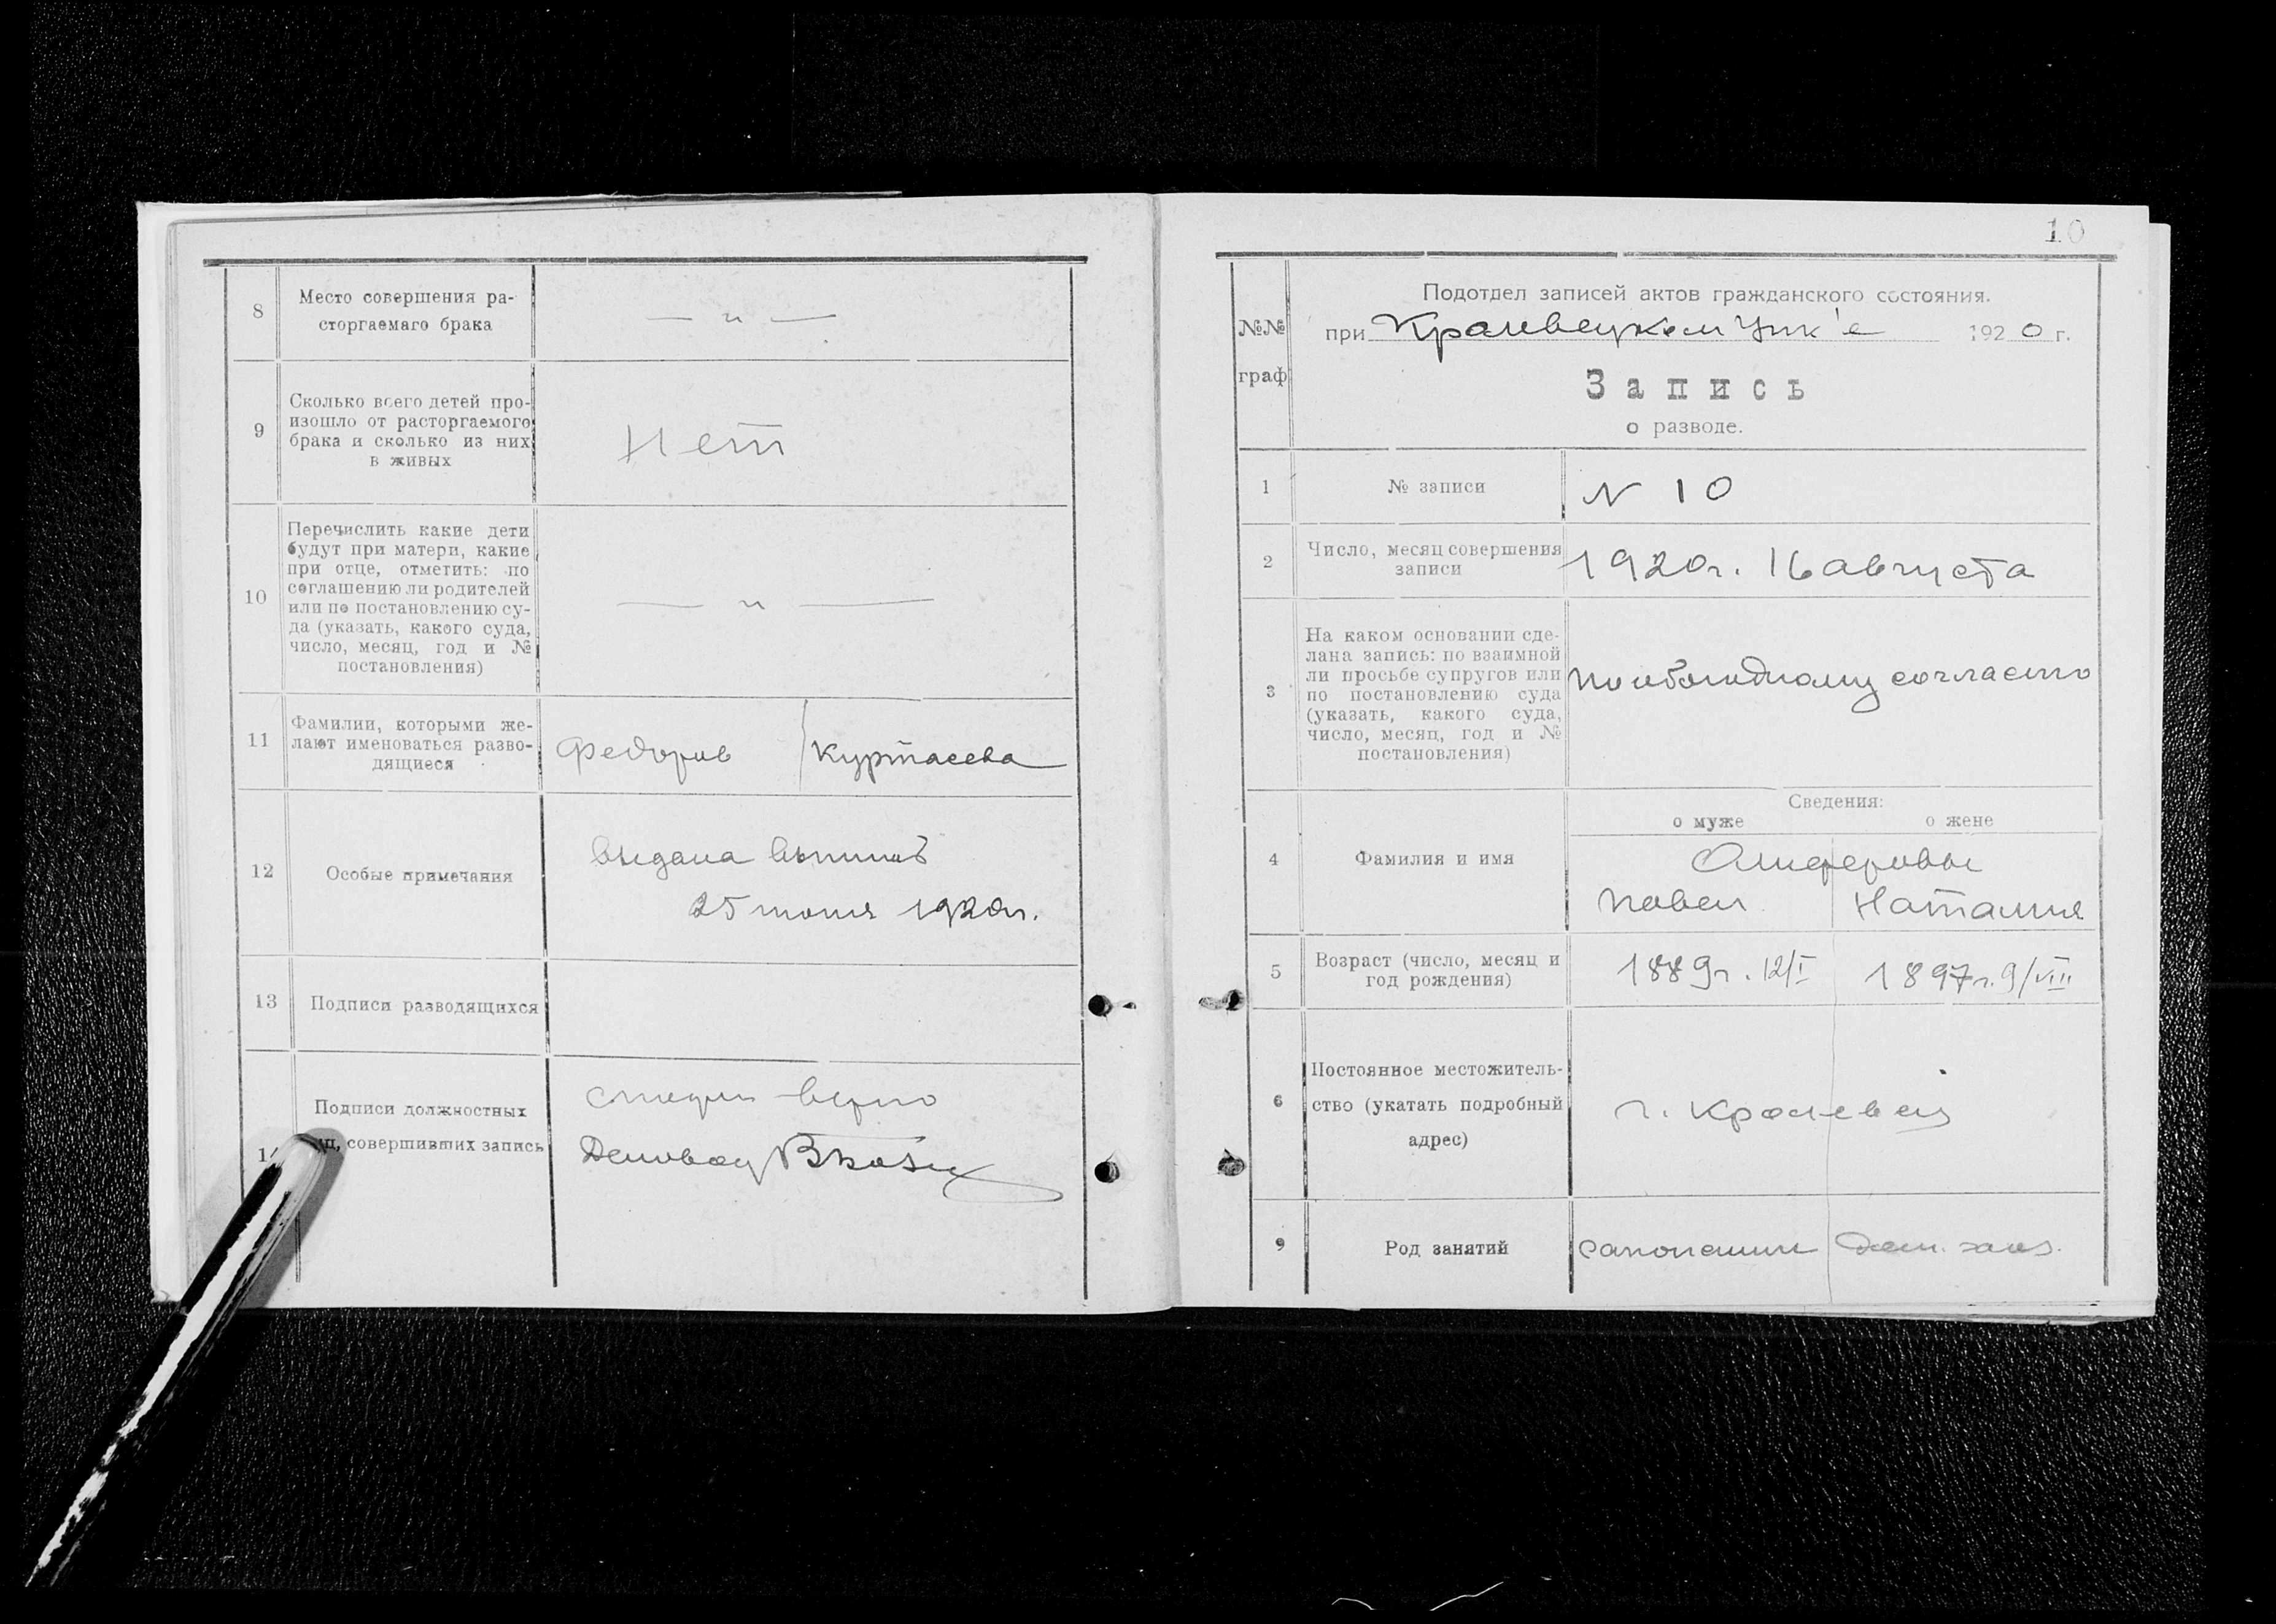 8
Место совершения ра-
сторгаемаго брака
— " —
9
Сколько всего детей про-
изошло от расторгаемого
брака и сколько из них
в живых
Нет
10
Перечислить какие дети
будут при матери, какие
при отце, отметить: по
соглашению ли родителей
или по постановлению су-
да (указать, какого суда,
число, месяц, год и №
постановления)
— " —
11
Фамилии, которыми же-
лают именоваться разво-
дящиеся
Федоров
Куртасева
12
Особые примечания
Выдана выпись
25 июня 1920г.
13
Подписи разводящихся
Подписи должностных
совершивших запись
верно
10
№№
граф
Подотдел записей актов гражданского состояния.
при Кролевецком Уик'е 1920 г.
Запись
о разводе.
1
№ записи
N 10
2
Число, месяц совершения
записи
1920г. 16 августа
3
На каком основании сде-
лана запись: по взаимной
ли просьбе супругов или
по постановлению суда
(указать, какого суда,
число, месяц, год и №
постановления)
по обоюдному согласию
Сведения:
о муже
о жене
4
Фамилия и имя
Павел
Наталия
5
Возраст (число, месяц и
год рождения)
1889г. 12/I
1897г. 9/VIII
6
Постоянное местожитель-
ство (укатать подробный
адрес)
г. Кролевец
9
Род занятий
сапожник
Дом. хоз.